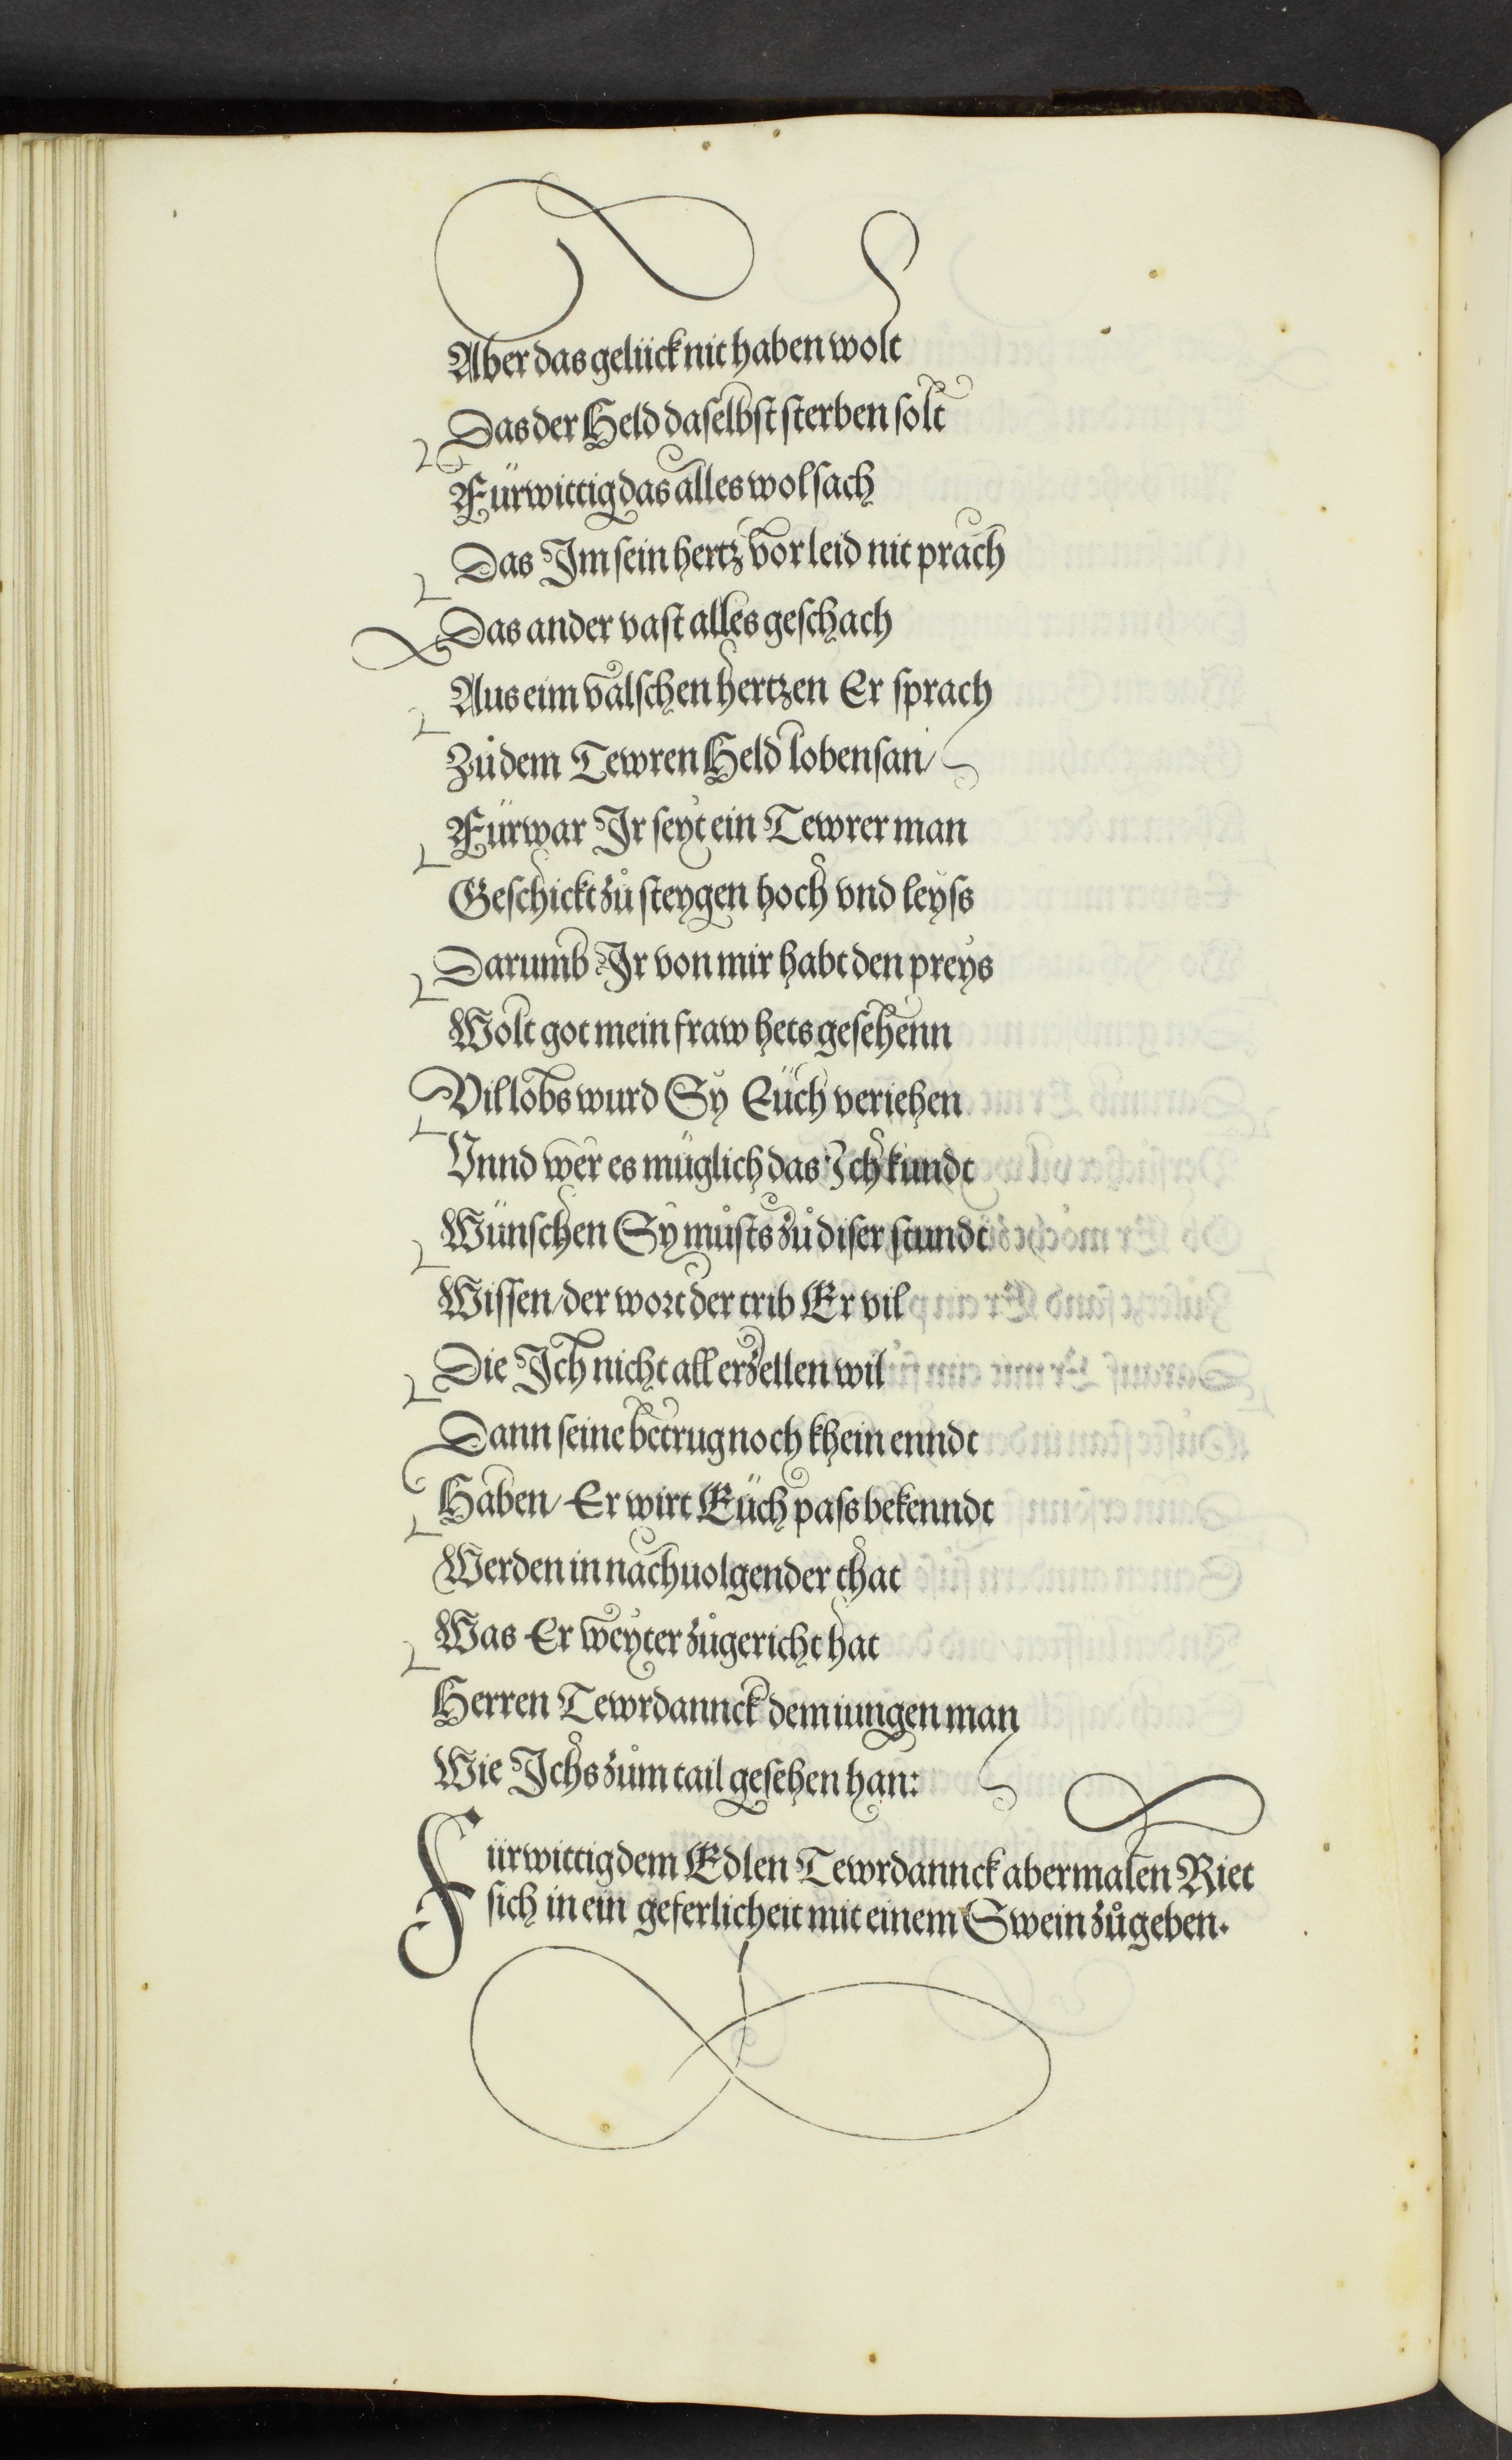 Aber das gelück nit haben wolt
Das der Held daselbst sterben solt
Fürwittig das alles wol sach
Das Im sein hertz vor leid nit prach
Das ander vast alles geschach
Aus eim valschen hertzen Er sprach
Zů dem Tewren Held lobensan/
Fürwar Ir seyt ein Tewrer man
Geschickt zů steygen hoch vnd leyss
Darumb Ir von mir habt den preys
Wolt got mein fraw hets gesehenn
Vil lobs wurd Sy Eüch veriehen
Vnnd wer es müglich das Ich kundt
Wünschen Sy můsts zů diser stundt
Wissen/ der wort der trib Er vil
Die Ich nicht all erzellen wil
Dann seine betrug noch khein enndt
Haben/ Er wirt Eüch pass bekenndt
Werden in nachuolgender that
Was Er weyter zůgericht hat
Herren Tewrdannck dem iungen man
Wie Ichs zům tail gesehen han:
Fürwittig dem Edlen Tewrdannck abermalen Riet
sich in ein geferlicheit mit einem Swein zůgeben.